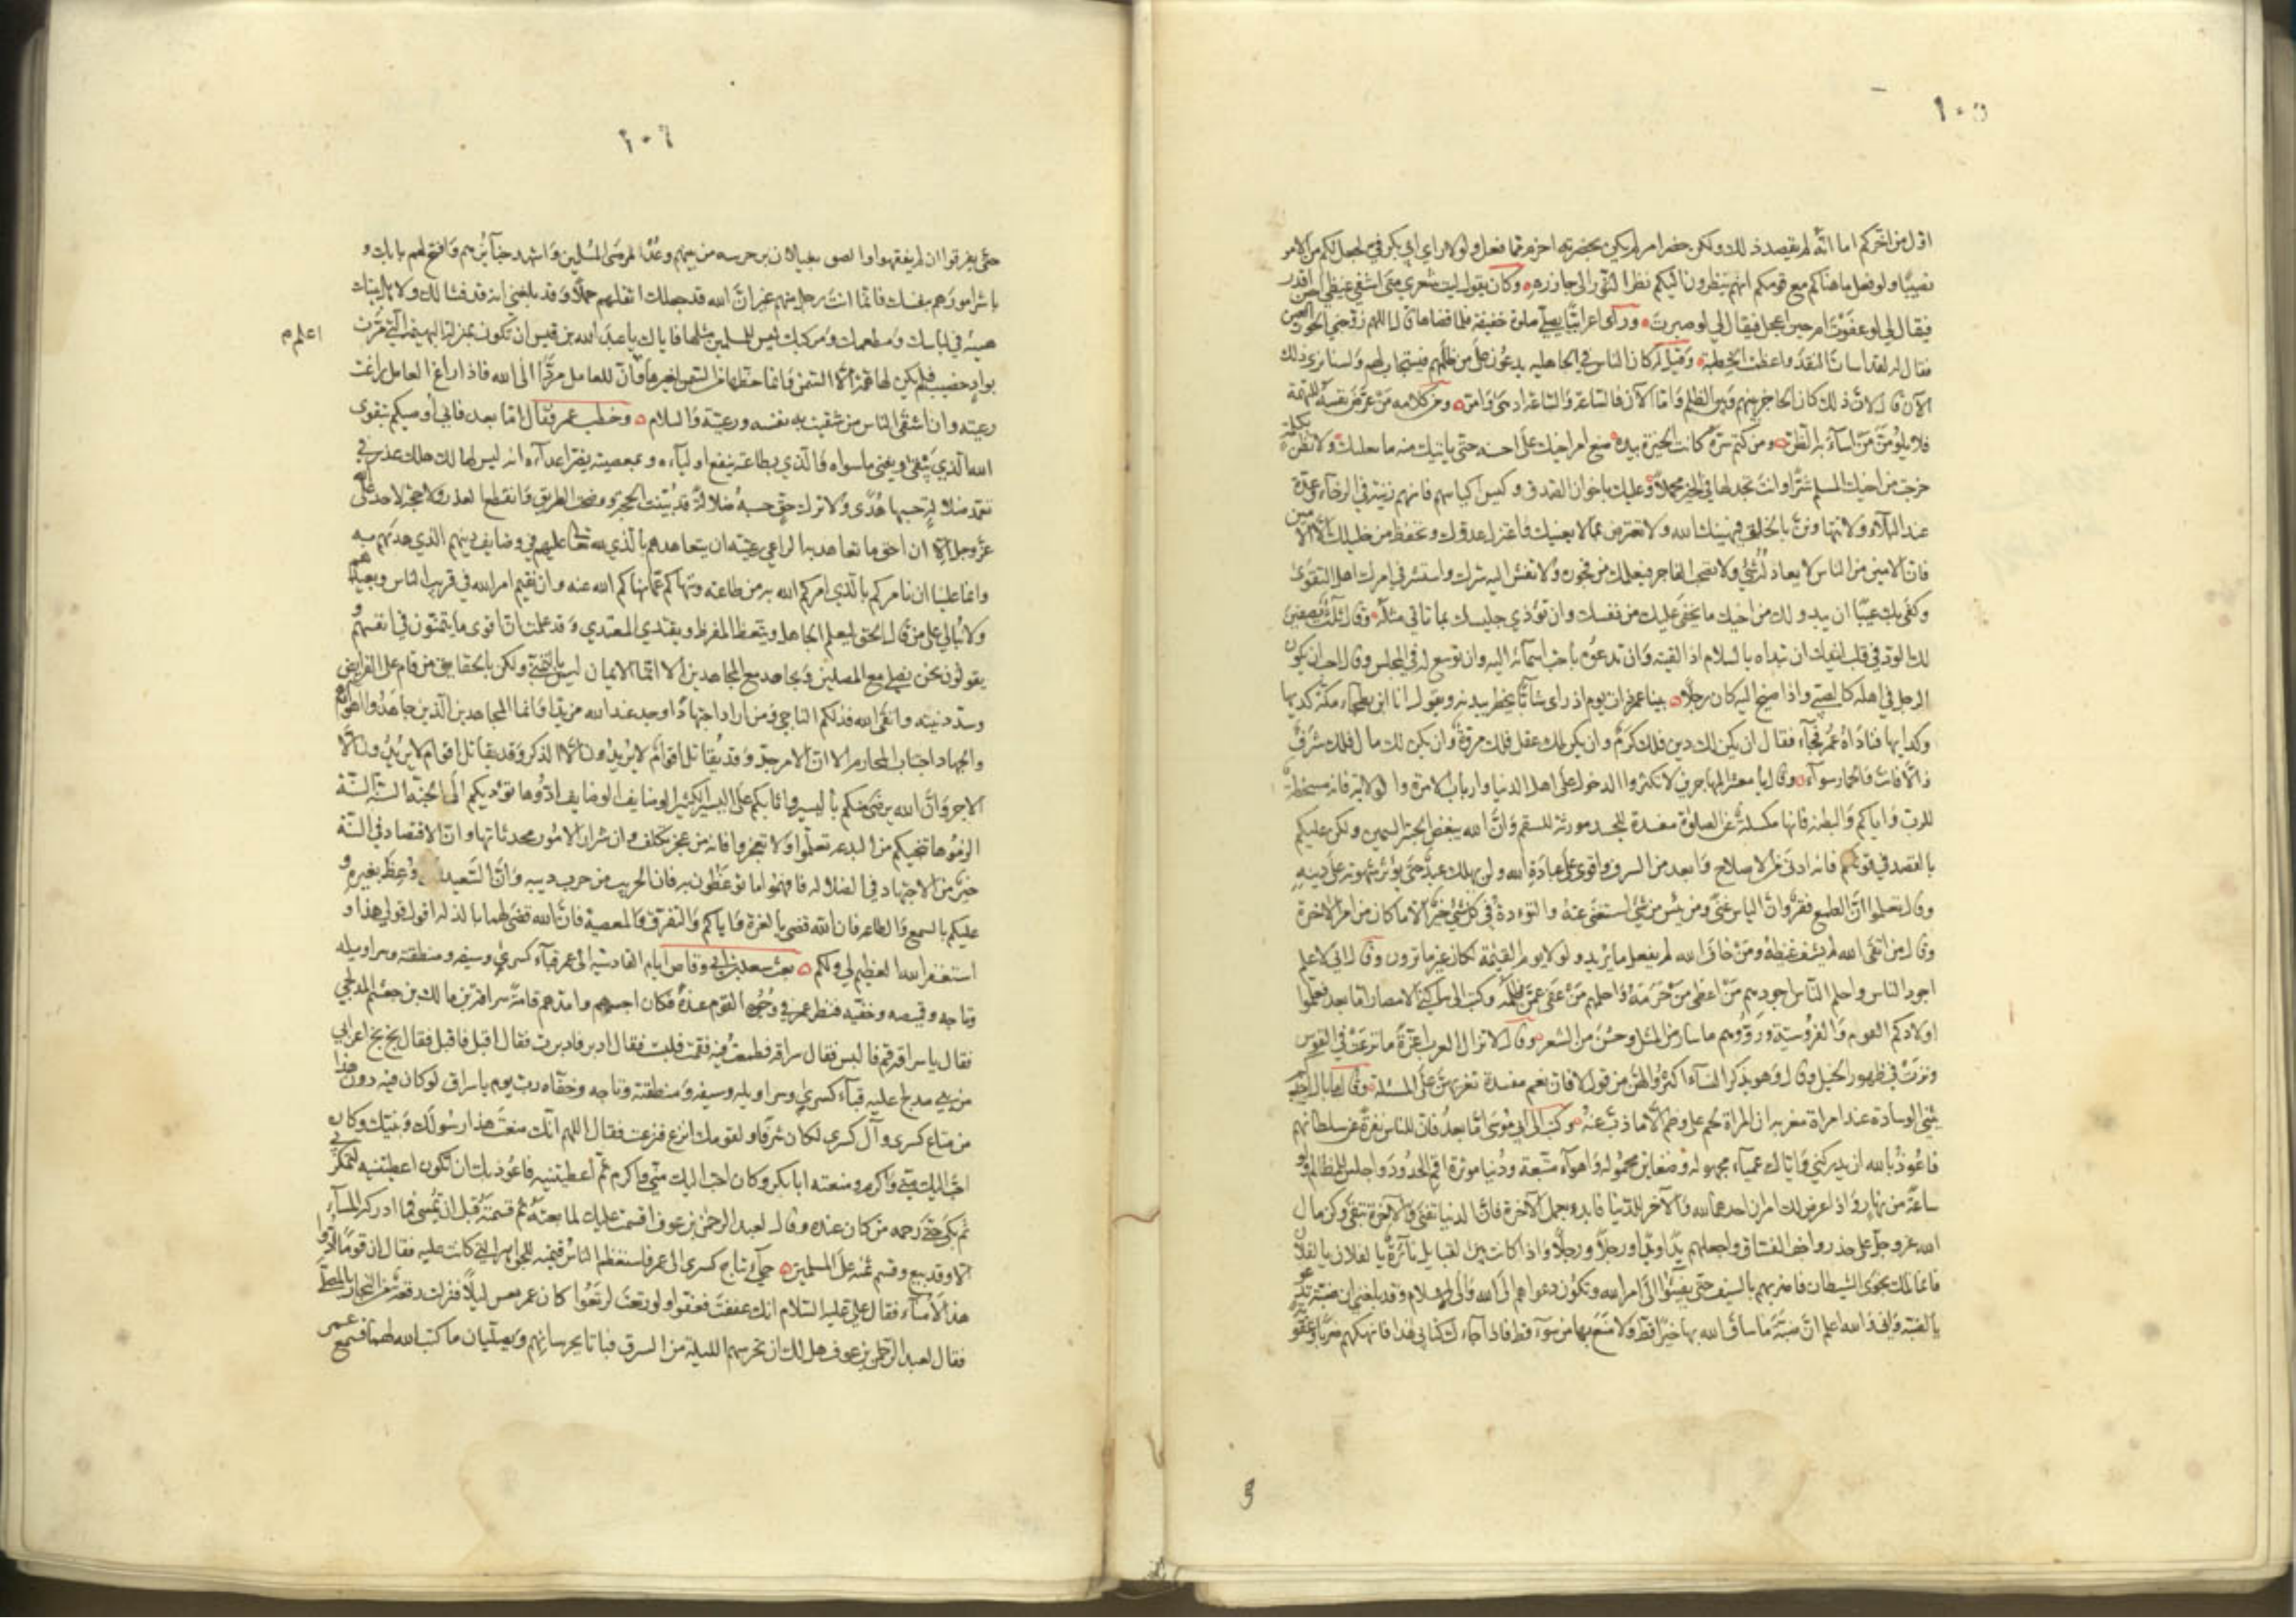 ١٠٥
اول من اخركم اما انه لم يقصد ذلك ولكن حضر امر لم يكن بحضرته احزم مما فعل ولولا راي ابي بكر في لجعل لكم من الامر
نصيبا ولو فعل ما هناكم مع قومكم انهم ينظرون اليكم نظر الثور الى جازره وكان يقول ليت شعري متى اشفي غيظي احين اقدر
فيقال لي لو عفوت ام حين اعجل فيقال لي لو صبرت وراى اعرابيا يصلي صلوة خفيفة فلما قضاها قال اللهم زوجني الحور العين
فقال له لقد اسات النقد واعظمت الخطبة وقيل له كان الناس في الجاهلية يدعون على من ظلمهم فيستجاب لهم ولسنا نرى ذلك
الآن قال لان ذلك كان الحاجز بينهم وبين الظلم واما الآن فالساعة والساعة ادهى وامر ومن كلامه من عرض نفسه للتهمة
فلا يلومن من اساء به الظن ومن كتم سره كانت الخيرة بيده ضع امر اخيك على احسنه حتى ياتيك منه ما يغلبك ولا تظنن بكلمة
خرجت من اخيك المسلم شرا وانت تجد لها في الخير محملا وعليك باخوان الصدق وكيس اكياسهم فانهم زينة في الرخاء وعدة
عند البلاء ولا تتهاونن بالخلق فيهينك الله ولا تعترض بما لا يعنيك واعتزل عدوك وتحفظ من خليلك الا الامين
فان الامين من الناس لا يعادله شيء ولا تصحب الفاجر فيعلمك من فجوره ولا تفش اليه سرك واستشر في امرك اهل التقوى
وكفى بك عيبا ان يبدو لك من اخيك ما يخفى عليك من نفسك وان تؤذي جليسك بما تاتي مثله وقال ثلث يصفين
لك الود في قلب اخيك ان تبداه بالسلام اذا لقيته وان تدعوه باحب اسمائه اليه وان توسع له في المجلس وقال احب ان يكون
الرجل في اهله كالصبي واذا صيح اليه كان رجلا بينا عمر ذات يوم اذ راى شابا يخطر بيديه ويقول انا ابن بطحاء مكة كديها
وكدايها فناداه عمر فجاء فقال ان يكن لك دين فلك كرم وان يكن لك عقل فلك مروة وان يكن لك مال فلك شرف
والا فانت والحمار سواء وقال يا معشر المهاجرين لا تكثروا الدخول على اهل الدنيا وارباب الامرة والولاية فانه مسخطة
للرب واياكم والبطنة فانها مكسلة عن الصلوة مفسدة للجسد مورثة للسقم وان الله يبغض الحبر السمين ولكن عليكم
بالقصد في قوتكم فانه ادنى من الاصلاح وابعد من السرف واقوى على عبادة الله ولن يهلك عبد حتى يؤثر شهوته على دينه
وقال تعلموا ان الطمع فقر وان الياس غنى ومن يئس من شيء استغنى عنه والتؤدة في كل شيء خير الا ما كان من امر الاخرة
وقال من اتقى الله لم يشف غيظه ومن خاف الله لم يفعل ما يريد ولولا يوم القيمة لكان غير ما ترون وقال اني لاعلم
اجود الناس واحلم الناس اجودهم من اعطى من حرمه واحلمهم من عفى عمن ظلمه وكتب الى ساكني الامصار اما بعد فعلموا
اولادكم العوم والفروسية ورووهم ما سار من المثل وحسن من الشعر وقال لا تزال العرب اعزة ما نزعت في القوس
ونزت في ظهور الخيل وقال وهو يذكر النساء اكثروا لهن من قول لا فان نعم مفسدة تغريهن على المسئلة وقال ما بال احدكم
يثني الوسادة عند امراة مغربة ان المراة لحم على وضم الا ما ذب عنه وكتب الى ابي موسى اما بعد فان للناس نفرة عن سلطانهم
فاعوذ بالله ان يدركني واياك عمياء مجهولة وضغاين محمولة واهواء متبعة ودنيا مؤثرة اقم الحدود واجلس للمظالم ولو
ساعة من نهار واذا عرض لك امران احدهما لله والاخر للدنيا فابدء بعمل الآخرة فان الدنيا تفنى والآخرة تبقى وكن من مال
الله عز وجل على حذر واخف الفساق واجعلهم يدا ويدا ورجلا ورجلا واذا كانت بين القبايل نائرة يا لفلان يا لفلان
فانما تلك نجوى الشيطان فاضربهم بالسيف حتى يفيئوا الى امر الله وتكون دعواهم الى الله والى الاسلام وقد بلغني ان ضبة تدعو
يا لضبة واني والله اعلم ان ضبة ما ساق الله بها خيرا قط ولا منع بها من سوء قط فاذا جاءك كتابي هذا فانهكهم ضربا وعقوبة
١٠٦
حتى يفرقوا ان لم يفقهوا والصق بغيلان بن خرشه من بينهم وعد مرضى المسلمين واشهد جنائزهم وافتح لهم بابك و
باشر امورهم بنفسك فانما انت رجل منهم غير ان الله قد جعلك اثقلهم حملا وقد بلغني انه قد فشا لك ولاهل بيتك
هيئة في لباسك ومطعمك ومركبك ليس للمسلمين مثلها فاياك يا عبد الله بن قيس ان تكون بمنزلة البهيمة التي مرت
بواد خصيب فلم يكن لها همة الا السمن وانما حظها من السمن لغيرها واعلم ان للعامل مردا الى الله فاذا زاغ العامل زاغت
رعيته وان اشقى الناس من شقيت به نفسه ورعيته والسلام وخطب عمر فقال اما بعد فاني اوصيكم بتقوى
الله الذي يبقى ويفنى ما سواه والذي بطاعته ينفع اولياءه وبمعصيته يضر اعداءه انه ليس لهالك هلك عذر في
تعمد ضلالة حسبها هدى ولا ترك حق حسبه ضلالة قد ثبتت الحجة ووضحت الطريق وانقطع العذر ولا حجة لاحد على الله
عز وجل الا ان احق ما تعاهد به الراعي رعيته ان يتعاهدهم بالذي لله تعالى عليهم في وضايف دينهم الذي هداهم به
وانما علينا ان نامركم بالذي امركم الله به من طاعته وننهاكم عما نهاكم الله عنه وان نقيم امر الله في قريب الناس وبعيدهم
ولا نبالي على من قال الحق ليعلم الجاهل ويتعظ المفرط ويقتدي المقتدي وقد علمت ان اقوى ما يتمنون في انفسهم و
يقولون نحن نصلي مع المصلين ونجاهد مع المجاهدين الا انما الايمان ليس بالتمني ولكن بالحقايق من قام على الفرايض
وسدد نيته واتقى الله فذلكم الناجي ومن زاد اجتهادا وجد عند الله مزيدا وانما المجاهدون الذين جاهدوا اهواءهم
والجهاد اجتناب المحارم الا ان الامر جد وقد يقاتل اقوام لا يريدون الا الذكر وقد يقاتل اقوام لا يريدون الا
الاجر وان الله يرضى منكم باليسير واثابكم على اليسير الكثير الوضايف الوضايف ادوها تؤديكم الى الجنة السنة السنة
الزموها تنجيكم من البدعة تعلموا ولا تعجزوا فانه من عجز تكلف وان شرار الامور محدثاتها وان الاقتصاد في السنة
خير من الاجتهاد في الضلالة فافهموا ما توعظون به فان الحريب من حرب دينه وان السعيد من وعظ بغيره و
عليكم بالسمع والطاعة فان الله قضى لهما بالعزة واياكم والتفرق والمعصية فان الله قضى لهما بالذلة اقول قولي هذا و
استغفر الله العظيم لي ولكم بعث سعد بن ابي وقاص ايام القادسية الى عمر قباء كسرى وسيفه ومنطقته وسراويله
وتاجه وقميصه وخفيه فنظر عمر في وجوه القوم عنده فكان اجسمهم وامدهم قامة سراقة بن مالك بن جعشم المدلجي
فقال يا سراقة قم فالبس فقال سراقة فطمعت فيه فقمت فلبست فقال ادبر فادبرت فقال اقبل فاقبلت فقال بخ بخ اعرابي
من بني مدلج عليه قباء كسرى وسراويله وسيفه ومنطقته وتاجه وخفاه رب يوم يا سراق لو كان فيه دون هذا
من متاع كسرى وآل كسرى لكان شرفا لك ولقومك انزع فنزعت فقال اللهم انك منعت هذا رسولك ونبيك وكان
احب اليك مني واكرم ومنعته ابا بكر وكان احب اليك مني واكرم ثم اعطيتنيه فاعوذ بك ان تكون اعطيتنيه لتمكر بي
ثم بكى حتى رحمه من كان عنده وقال لعبد الرحمن بن عوف اقسمت عليك لما بعته ثم قسمته قبل ان تمسي فما ادركه المساء
الا وقد بيع وقسم ثمنه على المسلمين جيء بتاج كسرى الى عمر فاستعظم الناس قيمته للجواهر التي كانت عليه فقال ان قوما ادوا
هذا لامناء فقال علي عليه السلام انك عففت فعفوا ولو رتعت لرتعوا كان عمر يعس ليلا فنزلت رفقة من التجار بالمصلى
فقال لعبد الرحمن بن عوف هل لك ان تحرسهم الليلة من السرق فباتا يحرسانهم ويصليان ما كتب الله لهما فسمع عمر